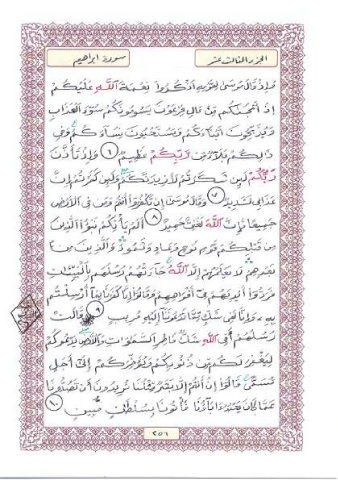 الجزء الثالث عشر
سورة ابراهيم
وَإِذْ قَالَ مُوسَىٰ لِقَوْمِهِ اذْكُرُوا نِعْمَةَ اللَّهِ عَلَيْكُمْ
إِذْ أَنْجَاكُمْ مِنْ آلِ فِرْعَوْنَ يَسُومُونَكُمْ سُوءَ الْعَذَابِ
وَيُذَبِّحُونَ أَبْنَاءَكُمْ وَيَسْتَحْيُونَ نِسَاءَكُمْ وَفِي
ذَٰلِكُمْ بَلَاءٌ مِنْ رَبِّكُمْ عَظِيمٌ ٦ وَإِذْ تَأَذَّنَ
رَبُّكُمْ لَئِنْ شَكَرْتُمْ لَأَزِيدَنَّكُمْ وَلَئِنْ كَفَرْتُمْ إِنَّ
عَذَابِي لَشَدِيدٌ ٧ وَقَالَ مُوسَىٰ إِنْ تَكْفُرُوا أَنْتُمْ وَمَنْ فِي الْأَرْضِ
جَمِيعًا فَإِنَّ اللَّهَ لَغَنِيٌّ حَمِيدٌ ٨ أَلَمْ يَأْتِكُمْ نَبَؤُا الَّذِينَ
مِنْ قَبْلِكُمْ قَوْمِ نُوحٍ وَعَادٍ وَثَمُودَ وَالَّذِينَ مِنْ
بَعْدِهِمْ لَا يَعْلَمُهُمْ إِلَّا اللَّهُ جَاءَتْهُمْ رُسُلُهُمْ بِالْبَيِّنَاتِ
فَرَدُّوا أَيْدِيَهُمْ فِي أَفْوَاهِهِمْ وَقَالُوا إِنَّا كَفَرْنَا بِمَا أُرْسِلْتُمْ
بِهِ وَإِنَّا لَفِي شَكٍّ مِمَّا تَدْعُونَنَا إِلَيْهِ مُرِيبٍ ٩ قَالَتْ
رُسُلُهُمْ أَفِي اللَّهِ شَكٌّ فَاطِرِ السَّمَاوَاتِ وَالْأَرْضِ يَدْعُوكُمْ
لِيَغْفِرَ لَكُمْ مِنْ ذُنُوبِكُمْ وَيُؤَخِّرَكُمْ إِلَىٰ أَجَلٍ
مُسَمًّى قَالُوا إِنْ أَنْتُمْ إِلَّا بَشَرٌ مِثْلُنَا تُرِيدُونَ أَنْ تَصُدُّونَا
عَمَّا كَانَ يَعْبُدُ آبَاؤُنَا فَأْتُونَا بِسُلْطَانٍ مُبِينٍ ١٠
٢٥٦